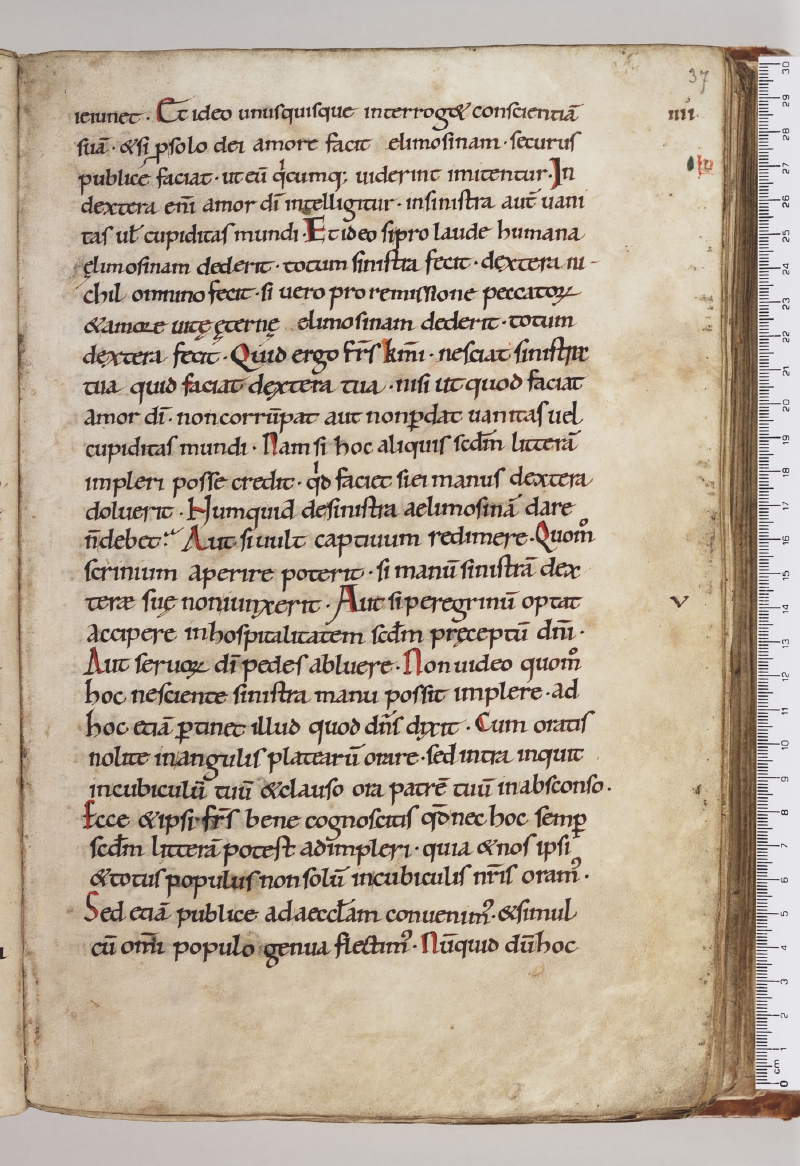 37
ieiunet · Et ideo unusquisque interroget conscientiā
suā · & si ꝑ solo dei amore facit elimosinam · securus
publice faciat · ut eū qͥcumq; uiderint imitentur · In
dextera eni̅ amor dī intelligitur · in sinistra aut̄ uani
tas ul̄ cupiditas mundi · Et ideo si pro laude humana
ęlimosinam dederit · totum sinistra fecit · dextera ni-
chil omnino fecit · si uero pro remissione peccatoꝝ
& amore uitę ęternę elimosinam dederit · totum
dextera fecit · Quid ergo fr̄s km̄i · nesciat sinistra
tua quid faciat dextera tua · nisi ut quod faciat
amor dī · non corrūpat aut non ꝑdat uanitas uel
cupiditas mundi · Nam si hoc aliquis scdm̄ litterā
impleri posse credit · qͥd faciet si ei manus dextera
doluerit · Numquid de sinistra aelimosinā dare
n̄ debet? Aut si uult captiuum redimere · Quom̊
scrinium aperire poterit · si manū sinistrā dex
teræ suę non iunxerit · Aut si peregrinū optat
accipere in hospitalitatem scdm̄ pręceptū dn̄i ·
Aut seruoꝝ dī pedes abluere · Non uideo quom̊
hoc nesciente sinistra manu possit implere · ad
hoc etiā ꝑtinet illud quod dn̄s dixit · Cum oratis
nolite in angulis platearū orare · sed intra inquit
in cubiculū tuū & clauso ora patrē tuū in absconso ·
Ecce & ipsi fr̄s bene cognoscitis qd̄ nec hoc semꝑ
scdm̄ litterā potest adimpleri · quia & nos ipsi
& totus populus non solū in cubiculis nr̄is oram᾽ ·
Sed etiā publice ad aeccl̄am conuenim᾽ · & simul
cū omī populo genua flectim᾽ · Nūquid dū hoc
iiii
V